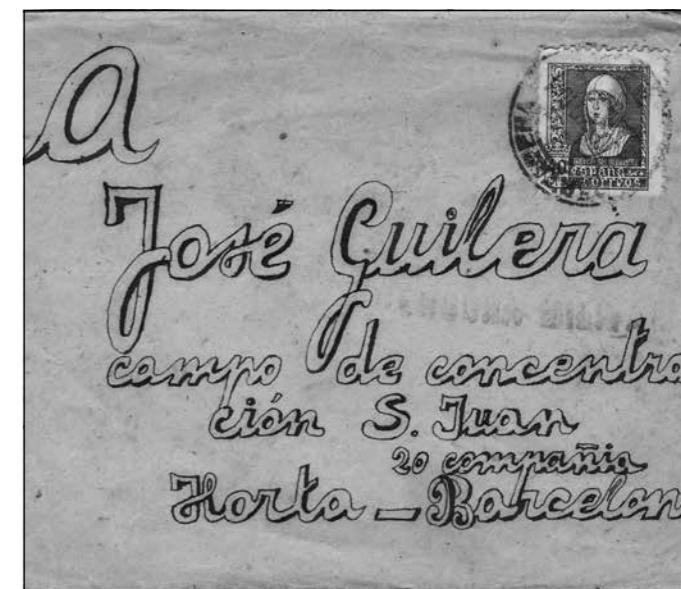 A
José Guilera
campo de concentra
ción S. Juan
20 compañia
Horta - Barcelon
España
correos